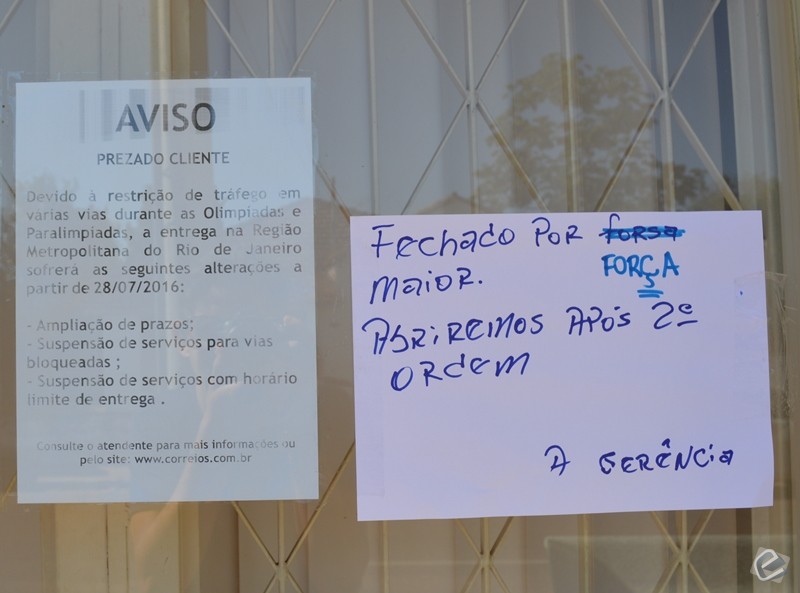 AVISO
PREZADO CLIENTE
Devido à restrição de tráfego em
várias vias durante as Olimpíadas e
Paralimpíadas, a entrega na Região
Metropolitana do Rio de Janeiro
sofrerá as seguintes alterações a
partir de 28/07/2016:
- Ampliação de prazos;
- Suspensão de serviços para vias
bloqueadas ;
- Suspensão de serviços com horário
limite de entrega .
Consulte o atendente para mais informações ou
pelo site: www.correios.com.br
Fechado por forsa
FORÇA
maior.
Abriremos após 2ª
ordem
A gerência
e